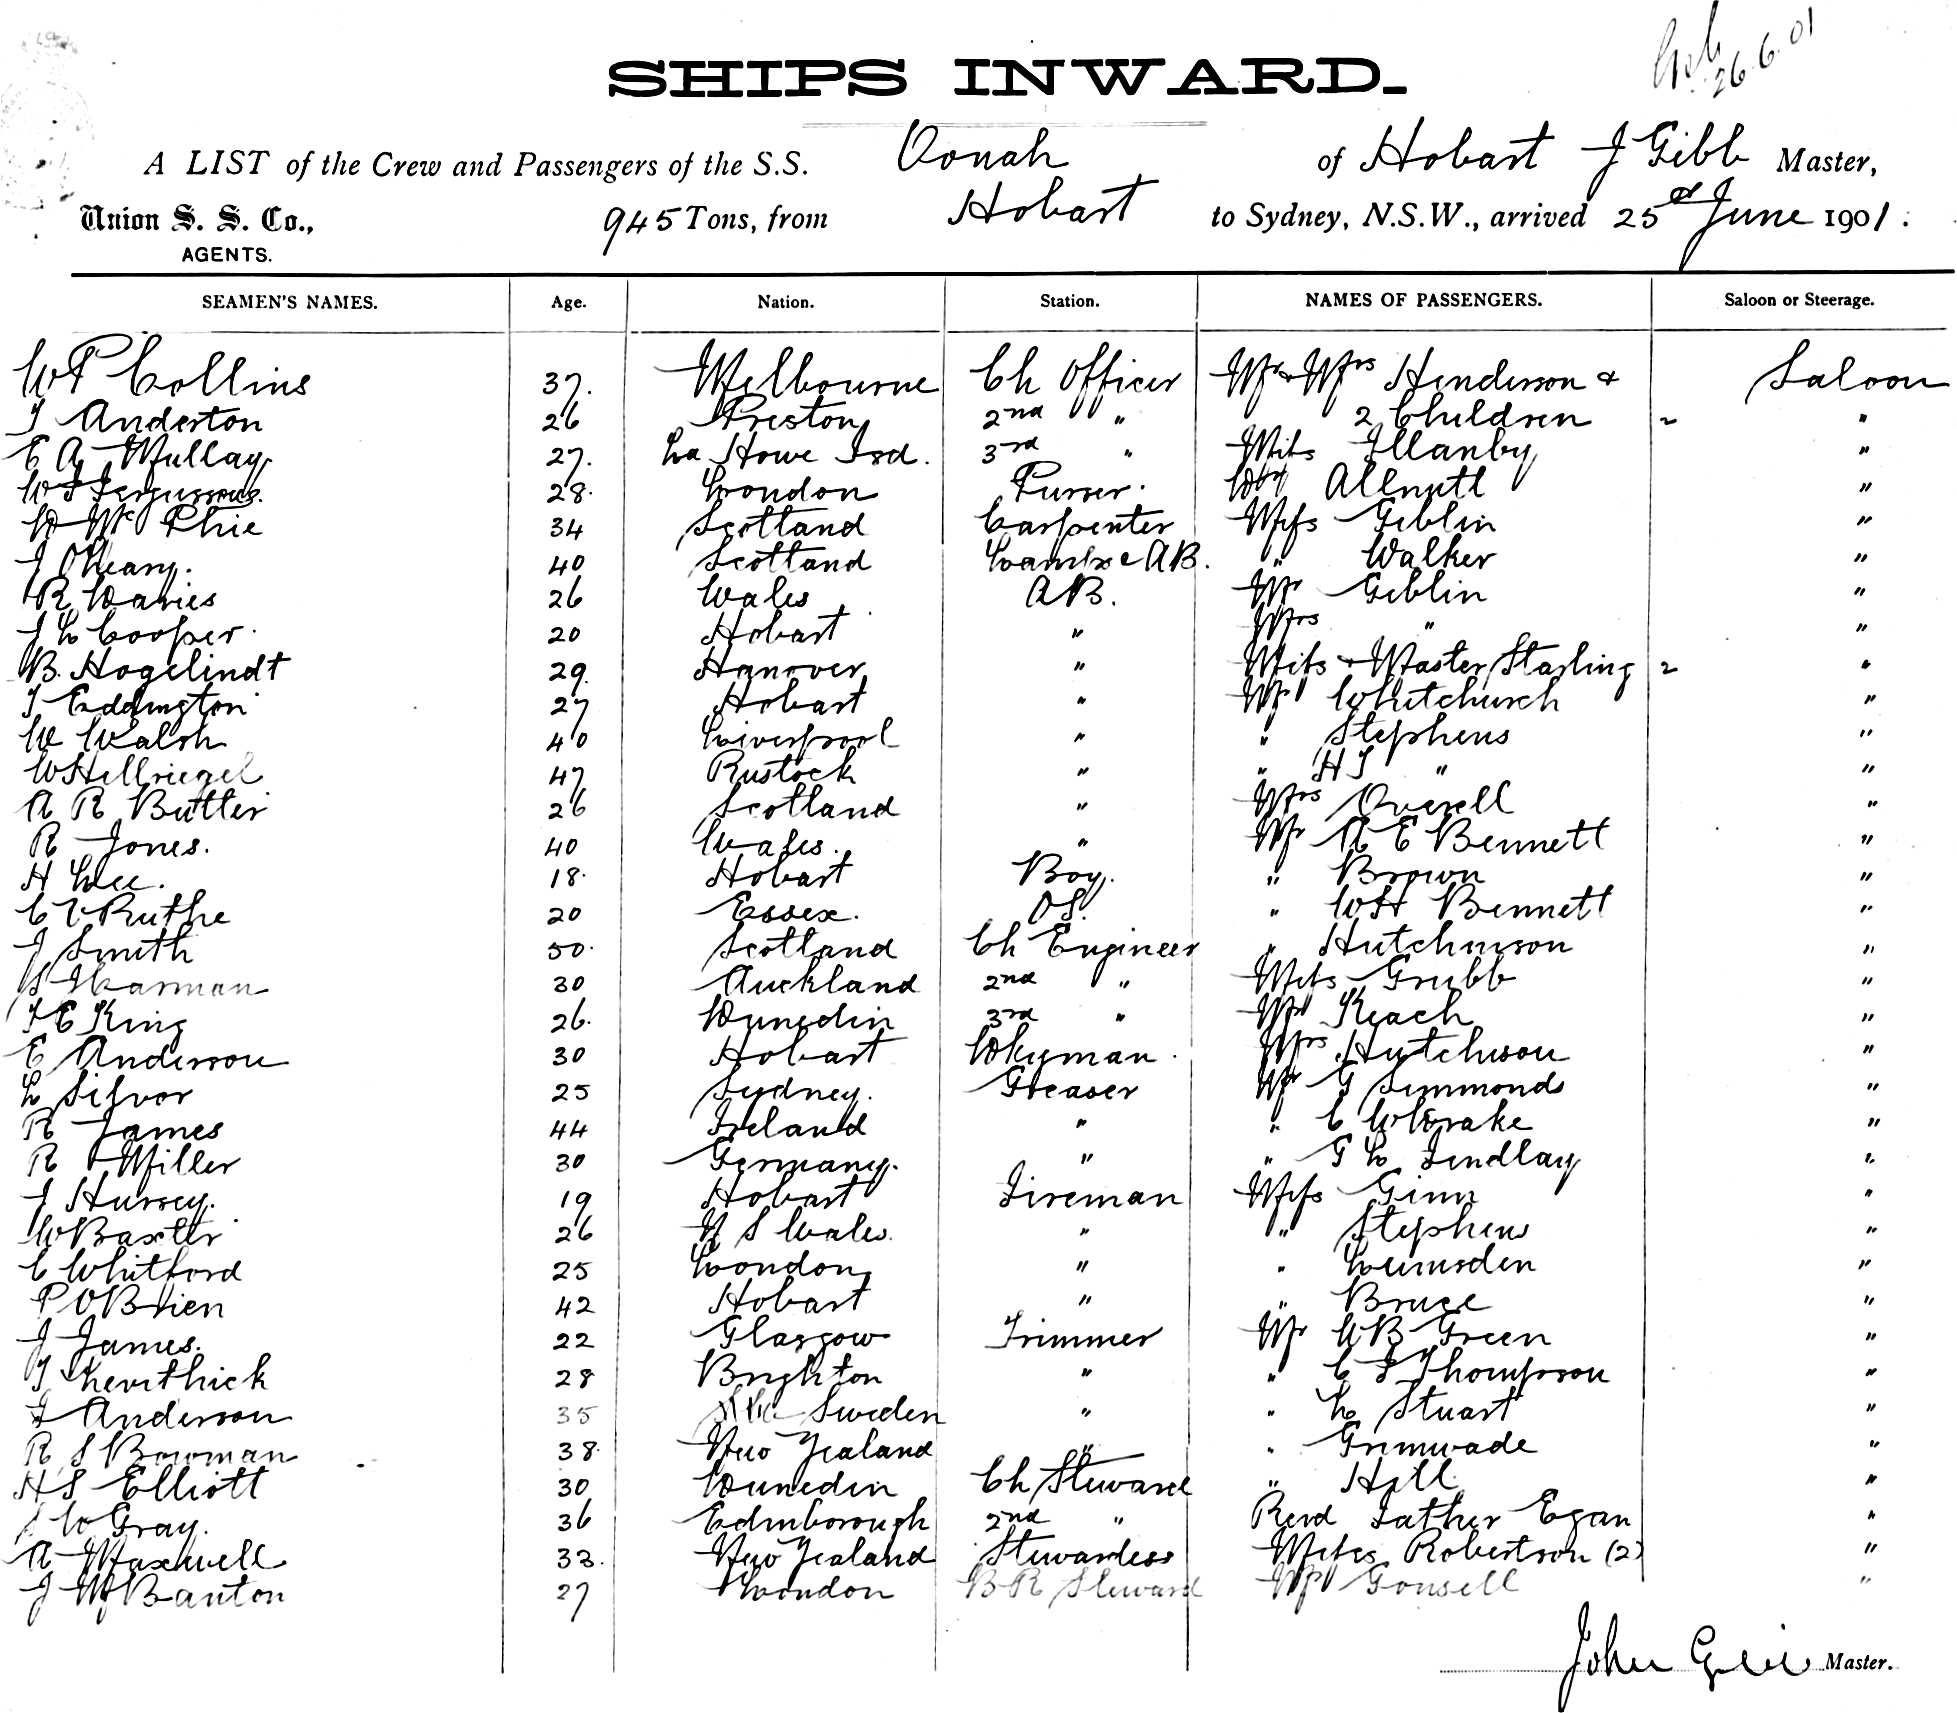 26.6.01
SHIPS INWARD.
A LIST of the Crew and Passengers of the S.S. Oonah of Hobart J Gibb Master,
Union S. S. Co., 945 Tons, from Hobart to Sydney, N.S.W., arrived 25th June 1901.
AGENTS.
SEAMEN'S NAMES. Age. Nation. Station. NAMES OF PASSENGERS. Saloon or Steerage.
W P Collins 37. Melbourne Ch Officer Mr & Mrs Henderson & Saloon
T Anderton 26 Preston 2nd " 2 Children 2 "
E A Mullay 27. Ld Howe Isd. 3rd " Miss Illanby "
W F Fergusson. 28. London Purser. Dr Allnutt "
D Mc Phie 34 Scotland Carpenter Miss Giblin "
J O'Meary. 40 Scotland Lamps & AB. " Walker "
R Davies 26 Wales AB. Mr Giblin "
J L Cooper. 20 Hobart " Mrs " "
B. Hogelindt 29. Hanover " Miss & Master Starling 2 "
T Eddington 27 Hobart " Mr Whitchurch "
W Walsh 40 Liverpool " " Stephens "
W Hellriegel 47 Rustock " " H J " "
A R Butter 26 Scotland " Mrs Overell "
R Jones. 40 Wales. " Mr A E Bennett "
H Lee. 18. Hobart Boy. " Brown "
C V Ruthe 20 Essex. OS. " W H Bennett "
J Smith 50. Scotland Ch Engineer " Hutchinson "
S Harman 30 Auckland 2nd " Miss Grubb "
F E King 26. Dunedin 3rd " Mr Keach "
E Anderson 30 Hobart Dkyman. Mrs Hutchison "
L Silvor 25 Sydney. Greaser Mr G Simmonds "
R James 44 Ireland " " C W Drake "
R Miller 30 Germany. " " G L Findlay "
J Hursey. 19 Hobart Fireman Miss Ginn "
W Baxter 26 N S Wales. " " Stephens "
C Whitford 25 London " " Lumsden "
P O'Brien 42 Hobart " " Bruce "
J James. 22 Glasgow Trimmer Mr W B Green "
T Kevithick 28 Brighton " " C F Thompson "
F Anderson 35 Sweden " " L Stuart "
R S Bowman 38. New Zealand " " Grimwade "
H S Elliott 30 Dunedin Ch Steward " Hill "
W Gray. 36 Edinborough 2nd " Revd Father Egan "
A Maxwell 33. New Zealand Stewardess Misses Robertson (2) "
J McBanton 27 London B R Steward Mr Gonsell "
John Gibb Master.